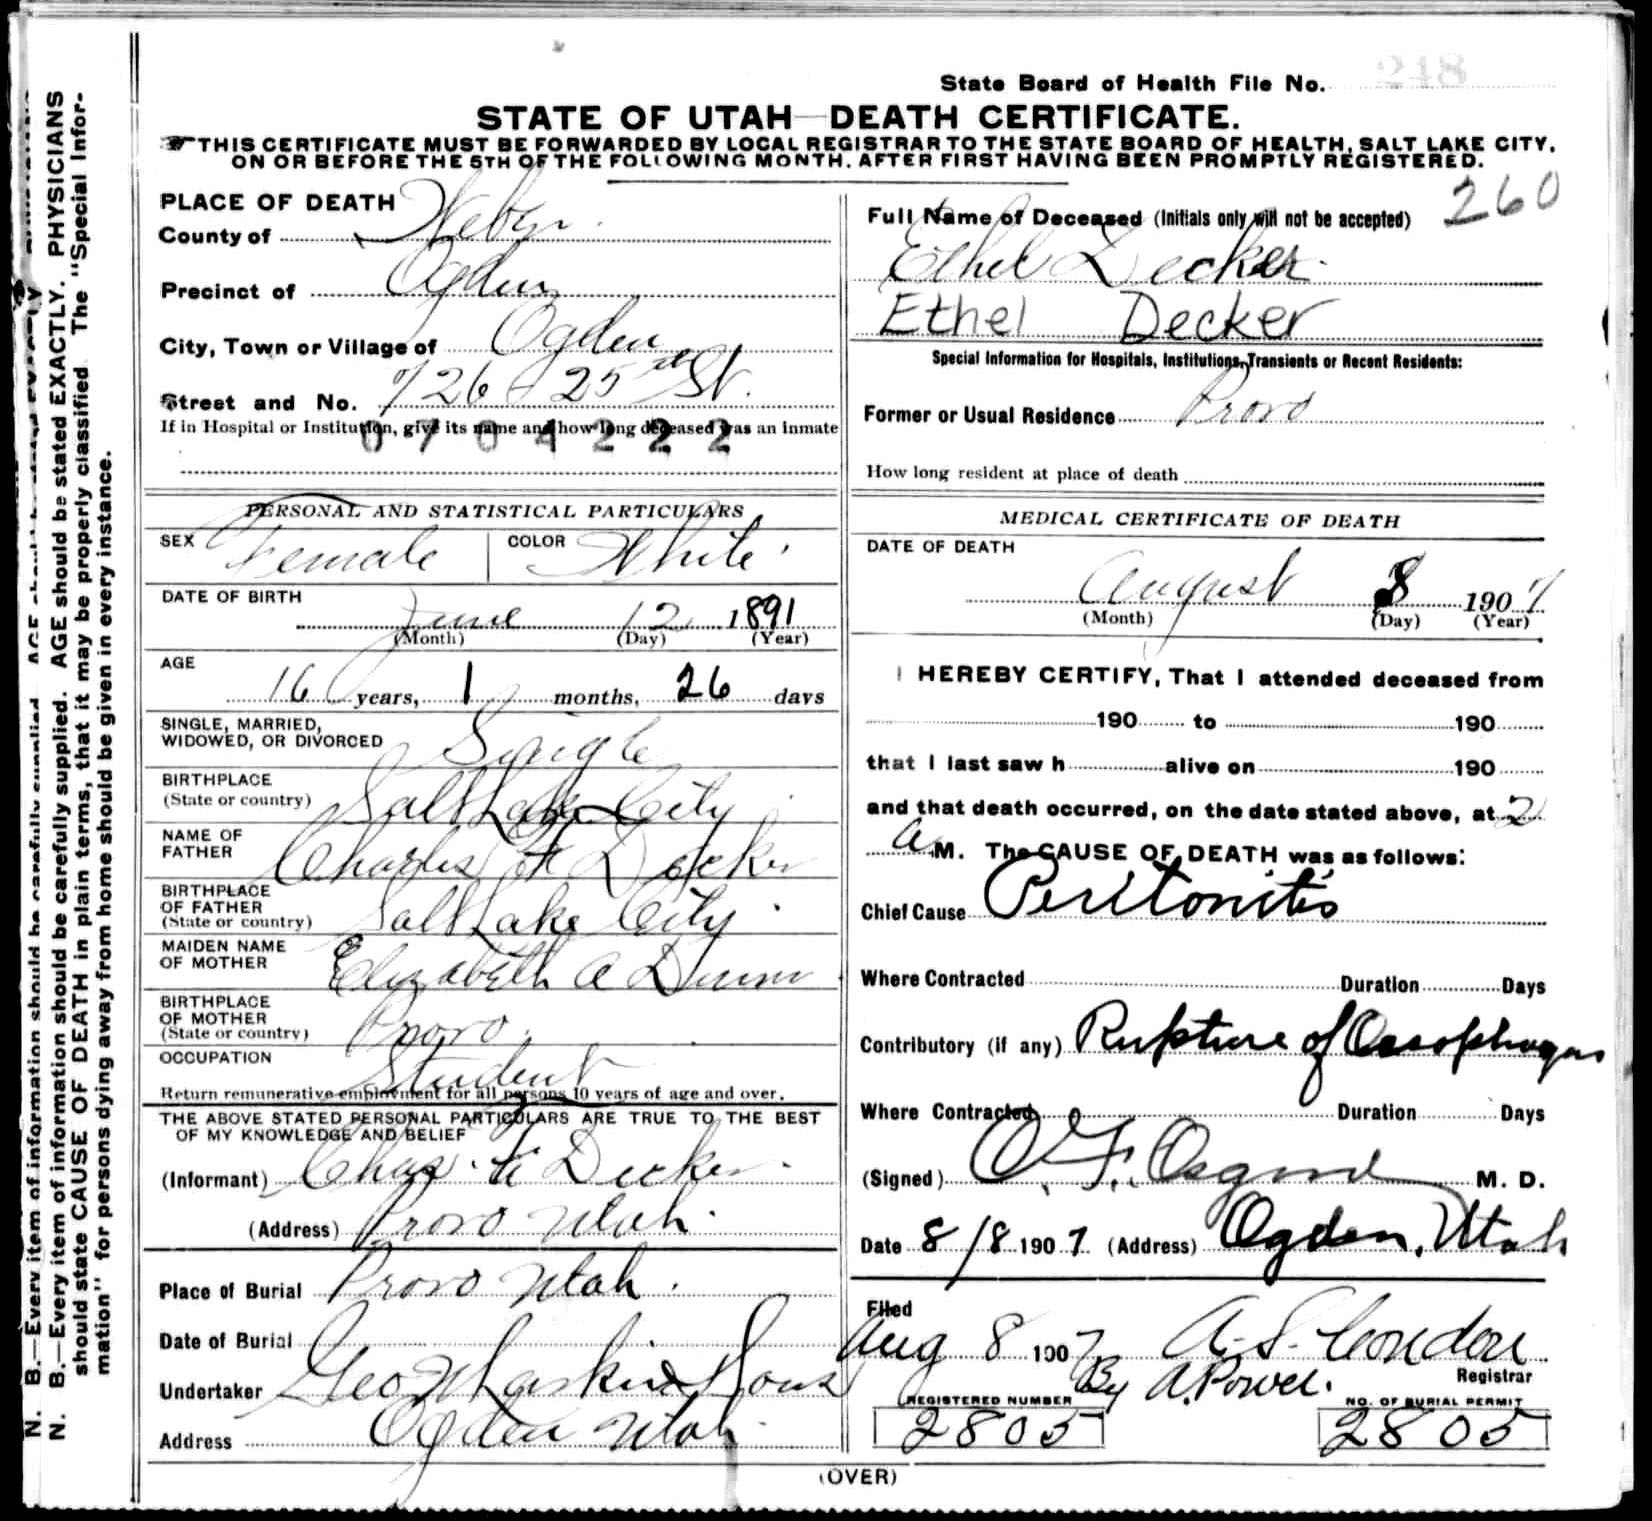 N. B.—Every item of information should be carefully supplied. AGE should be stated EXACTLY. PHYSICIANS
should state CAUSE OF DEATH in plain terms, that it may be properly classified. The "Special Infor-
mation" for persons dying away from home should be given in every instance.
State Board of Health File No. 248
STATE OF UTAH—DEATH CERTIFICATE.
THIS CERTIFICATE MUST BE FORWARDED BY LOCAL REGISTRAR TO THE STATE BOARD OF HEALTH, SALT LAKE CITY,
ON OR BEFORE THE 5TH OF THE FOLLOWING MONTH, AFTER FIRST HAVING BEEN PROMPTLY REGISTERED.
PLACE OF DEATH
County of Weber
Precinct of Ogden
City, Town or Village of Ogden
Street and No. 726 - 25th St.
If in Hospital or Institution, give its name and how long deceased was an Inmate
0704222
PERSONAL AND STATISTICAL PARTICULARS
SEX Female COLOR White
DATE OF BIRTH
June 12 1891
(Month) (Day) (Year)
AGE
16 years, 1 months, 26 days
SINGLE, MARRIED,
WIDOWED, OR DIVORCED Single
BIRTHPLACE
(State or country) Salt Lake City
NAME OF
FATHER Charles F Decker
BIRTHPLACE
OF FATHER
(State or country) Salt Lake City
MAIDEN NAME
OF MOTHER Elizabeth A Dunn
BIRTHPLACE
OF MOTHER
(State or country) Provo
OCCUPATION Student
Return remunerative employment for all persons 10 years of age and over.
THE ABOVE STATED PERSONAL PARTICULARS ARE TRUE TO THE BEST
OF MY KNOWLEDGE AND BELIEF
(Informant) Chas. F Decker
(Address) Provo Utah.
Place of Burial Provo Utah.
Date of Burial
Undertaker Geo Larkin & Sons
Address Ogden Utah
260
Full Name of Deceased (Initials only will not be accepted)
Ethel Decker
Ethel Decker
Special Information for Hospitals, Institutions, Transients or Recent Residents:
Former or Usual Residence Provo
How long resident at place of death
MEDICAL CERTIFICATE OF DEATH
DATE OF DEATH
August 8 1907
(Month) (Day) (Year)
I HEREBY CERTIFY, That I attended deceased from
190 to 190
that I last saw h alive on 190
and that death occurred, on the date stated above, at 2
A M. The CAUSE OF DEATH was as follows:
Chief Cause Peritonitis
Where Contracted Duration Days
Contributory (if any) Rupture of Oesophagus
Where Contracted Duration Days
(Signed) O. F. Osgood M. D.
Date 8/8 1907 (Address) Ogden, Utah
Filed
Aug 8 1907 A. S. Condon
Registrar
By A. Powel.
REGISTERED NUMBER NO. OF BURIAL PERMIT
2805 2805
(OVER)